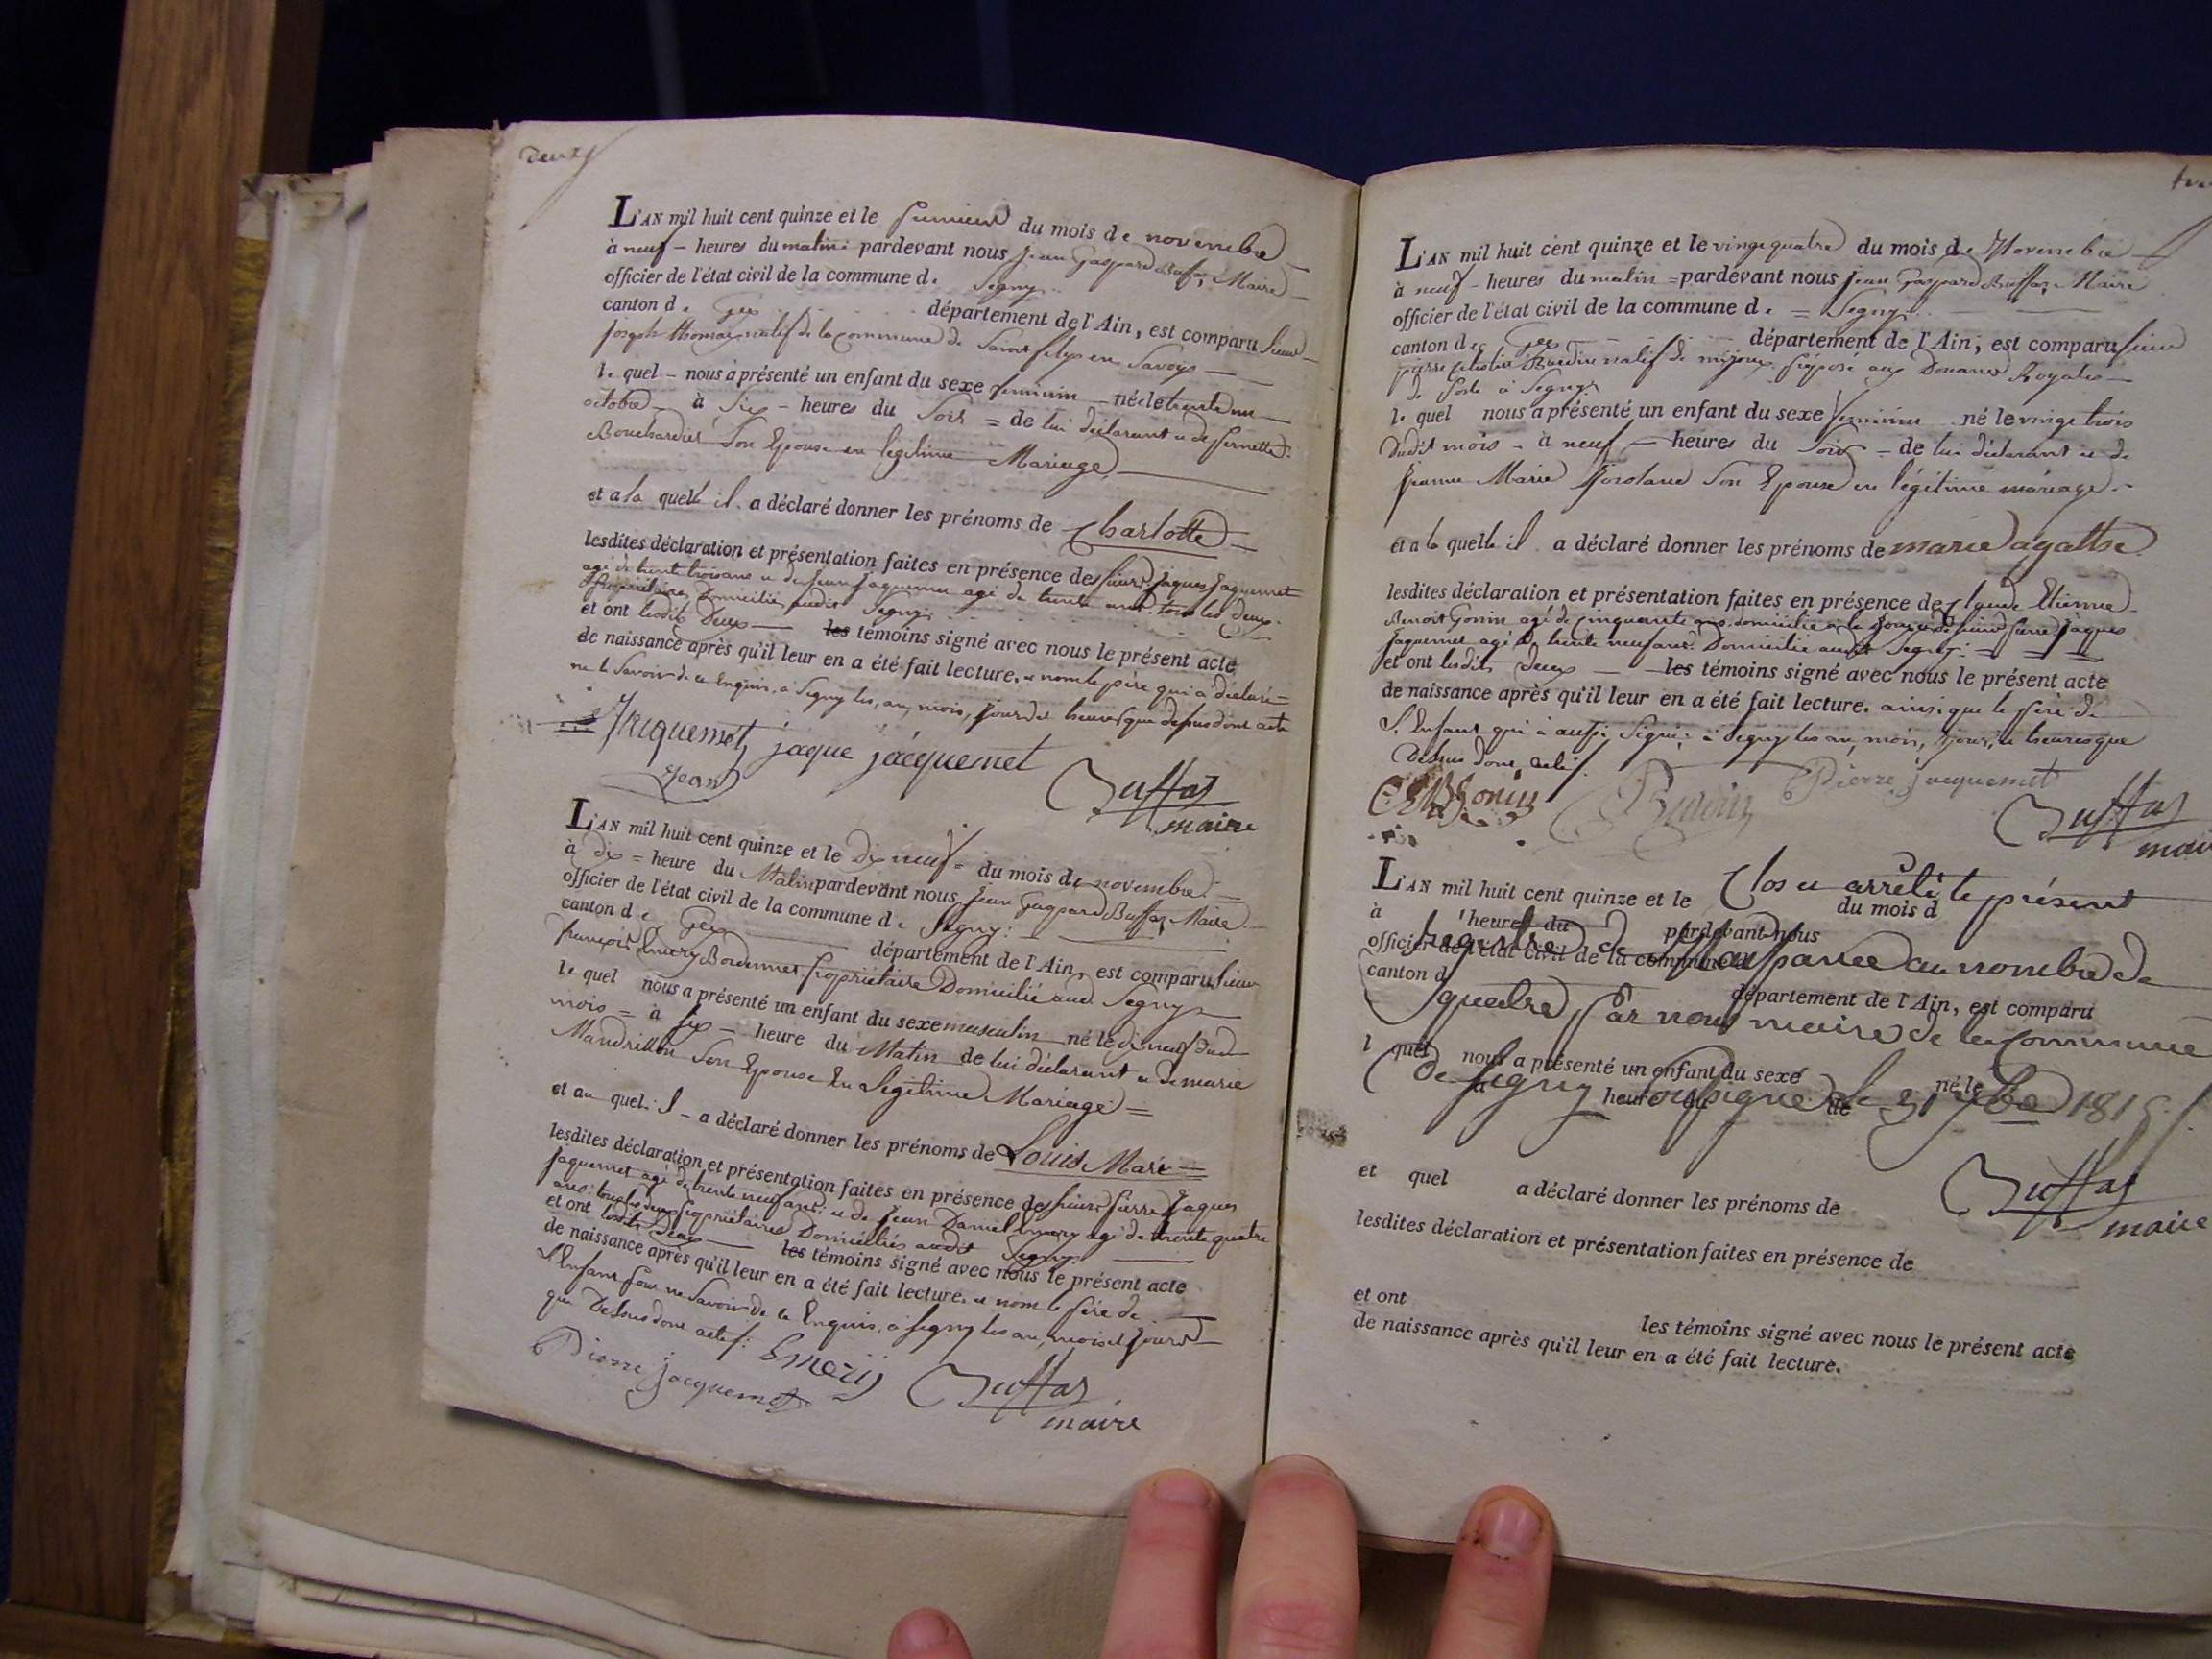 Deux
L'AN mil huit cent quinze et le premier du mois de novembre
à neuf - heures du matin pardevant nous Jean Gaspard Buffaz, Maire
officier de l'état civil de la commune de Segny
canton de Gex département de l'Ain, est comparu sieur
joseph thomas natif de la commune de Saint en Savoye
le quel - nous a présenté un enfant du sexe feminin né le trente un
octobre à Six - heures du Soir = de lui déclarant et de pernette
Bouchardier Son Epouse en légitime Mariage
et a la quelle il a déclaré donner les prénoms de Charlotte
lesdites déclaration et présentation faites en présence des sieurs jaques jaquemet
agé de trente trois ans et de jean jaquemet agé de trente ans tous les deux
propriétaires Domiciliés audit Segny
et ont lesdits Deux les témoins signé avec nous le présent acte
de naissance après qu'il leur en a été fait lecture. et non le père qui a déclaré
ne le Savoir de ce Enquis, a Segny les an, mois, jour et heures que dessus dont acte
Jacquemet jaque jacquemet
Jean Buffaz
maire
L'AN mil huit cent quinze et le Dix neuf = du mois de novembre
à dix = heure du Matin pardevant nous Jean Gaspard Buffaz, Maire
officier de l'état civil de la commune de Segny
canton de Gex département de l'Ain, est comparu Sieur
françois Emery propriétaire Domicilié aud Segny
le quel nous a présenté un enfant du sexe masculin né le dix neuf dud
mois = à six - heure du Matin de lui déclarant et de marie
Mandrillon Son Epouse En Légitime Mariage =
et au quel il - a déclaré donner les prénoms de Louis Marie =
lesdites déclaration et présentation faites en présence des sieurs pierre Jaques
jaquemet agé de trente neuf ans et de Jean Daniel Emery agé de trente quatre
ans tous les deux propriétaires Domiciliés audit Segny
et ont lesdits Deux les témoins signé avec nous le présent acte
de naissance après qu'il leur en a été fait lecture. et non le père de
L'Enfant pour ne Savoir de ce Enquis. a Segny les an, mois et jour
que Dessus dont acte
Emery
Pierre jacquemet Buffaz
maire
L'AN mil huit cent quinze et le vingt quatre du mois de Novembre
à neuf - heures du matin = pardevant nous Jean Gaspard Buffaz, Maire
officier de l'état civil de la commune de = Segny
canton de Gex département de l'Ain, est comparu sieur
pierre natif de mijoux préposé aux Douanes Royales
de poste à Segny
le quel nous a présenté un enfant du sexe feminin né le vingt trois
dudit mois - à neuf heures du Soir = de lui déclarant et de
jeanne Marie Son Epouse en légitime mariage
et a la quelle il a déclaré donner les prénoms de marie agathe
lesdites déclaration et présentation faites en présence de Claude Etienne
Benoit Gonin agé de cinquante ans domicilié a et de sieur pierre jaques
jaquemet agé de trente neuf ans Domicilié audit Segny
et ont lesdits deux les témoins signé avec nous le présent acte
de naissance après qu'il leur en a été fait lecture. ainsi que le père de
L'Enfant qui a aussi Signé; a Segny les an, mois, jour, et heures que
Dessus dont acte
Gonin Pierre jacquemet
Buffaz
maire
L'AN mil huit cent quinze et le Clos et arrêté le présent
du mois d
à heures du pardevant nous
registre de
officier de l'état civil de la commune d
au nombre de
canton d
département de l'Ain, est comparu
quatre par nous maire de la Commune
l quel nous a présenté un enfant du sexe né le
de Segny Soussigné le 31 Xbre 1815
heure du de
et quel a déclaré donner les prénoms de
Buffaz
maire
lesdites déclaration et présentation faites en présence de
et ont les témoins signé avec nous le présent acte
de naissance après qu'il leur en a été fait lecture.